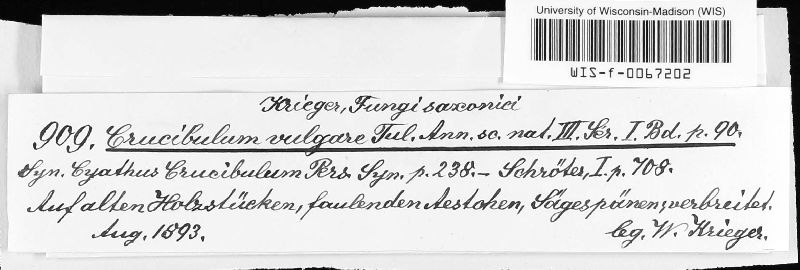 University of Wisconsin-Madison (WIS)
WIS-f-0067202
Krieger, Fungi saxonici
909. Crucibulum vulgare Tul. Ann. sc. nat. III. Ser. I. Bd. p. 90.
Syn. Cyathus Crucibulum Pers. Syn. p. 238. – Schröter, I. p. 708.
Auf alten Holzstücken, faulenden Aestchen, Sägespänen; verbreitet.
Aug. 1893.
leg. W. Krieger.